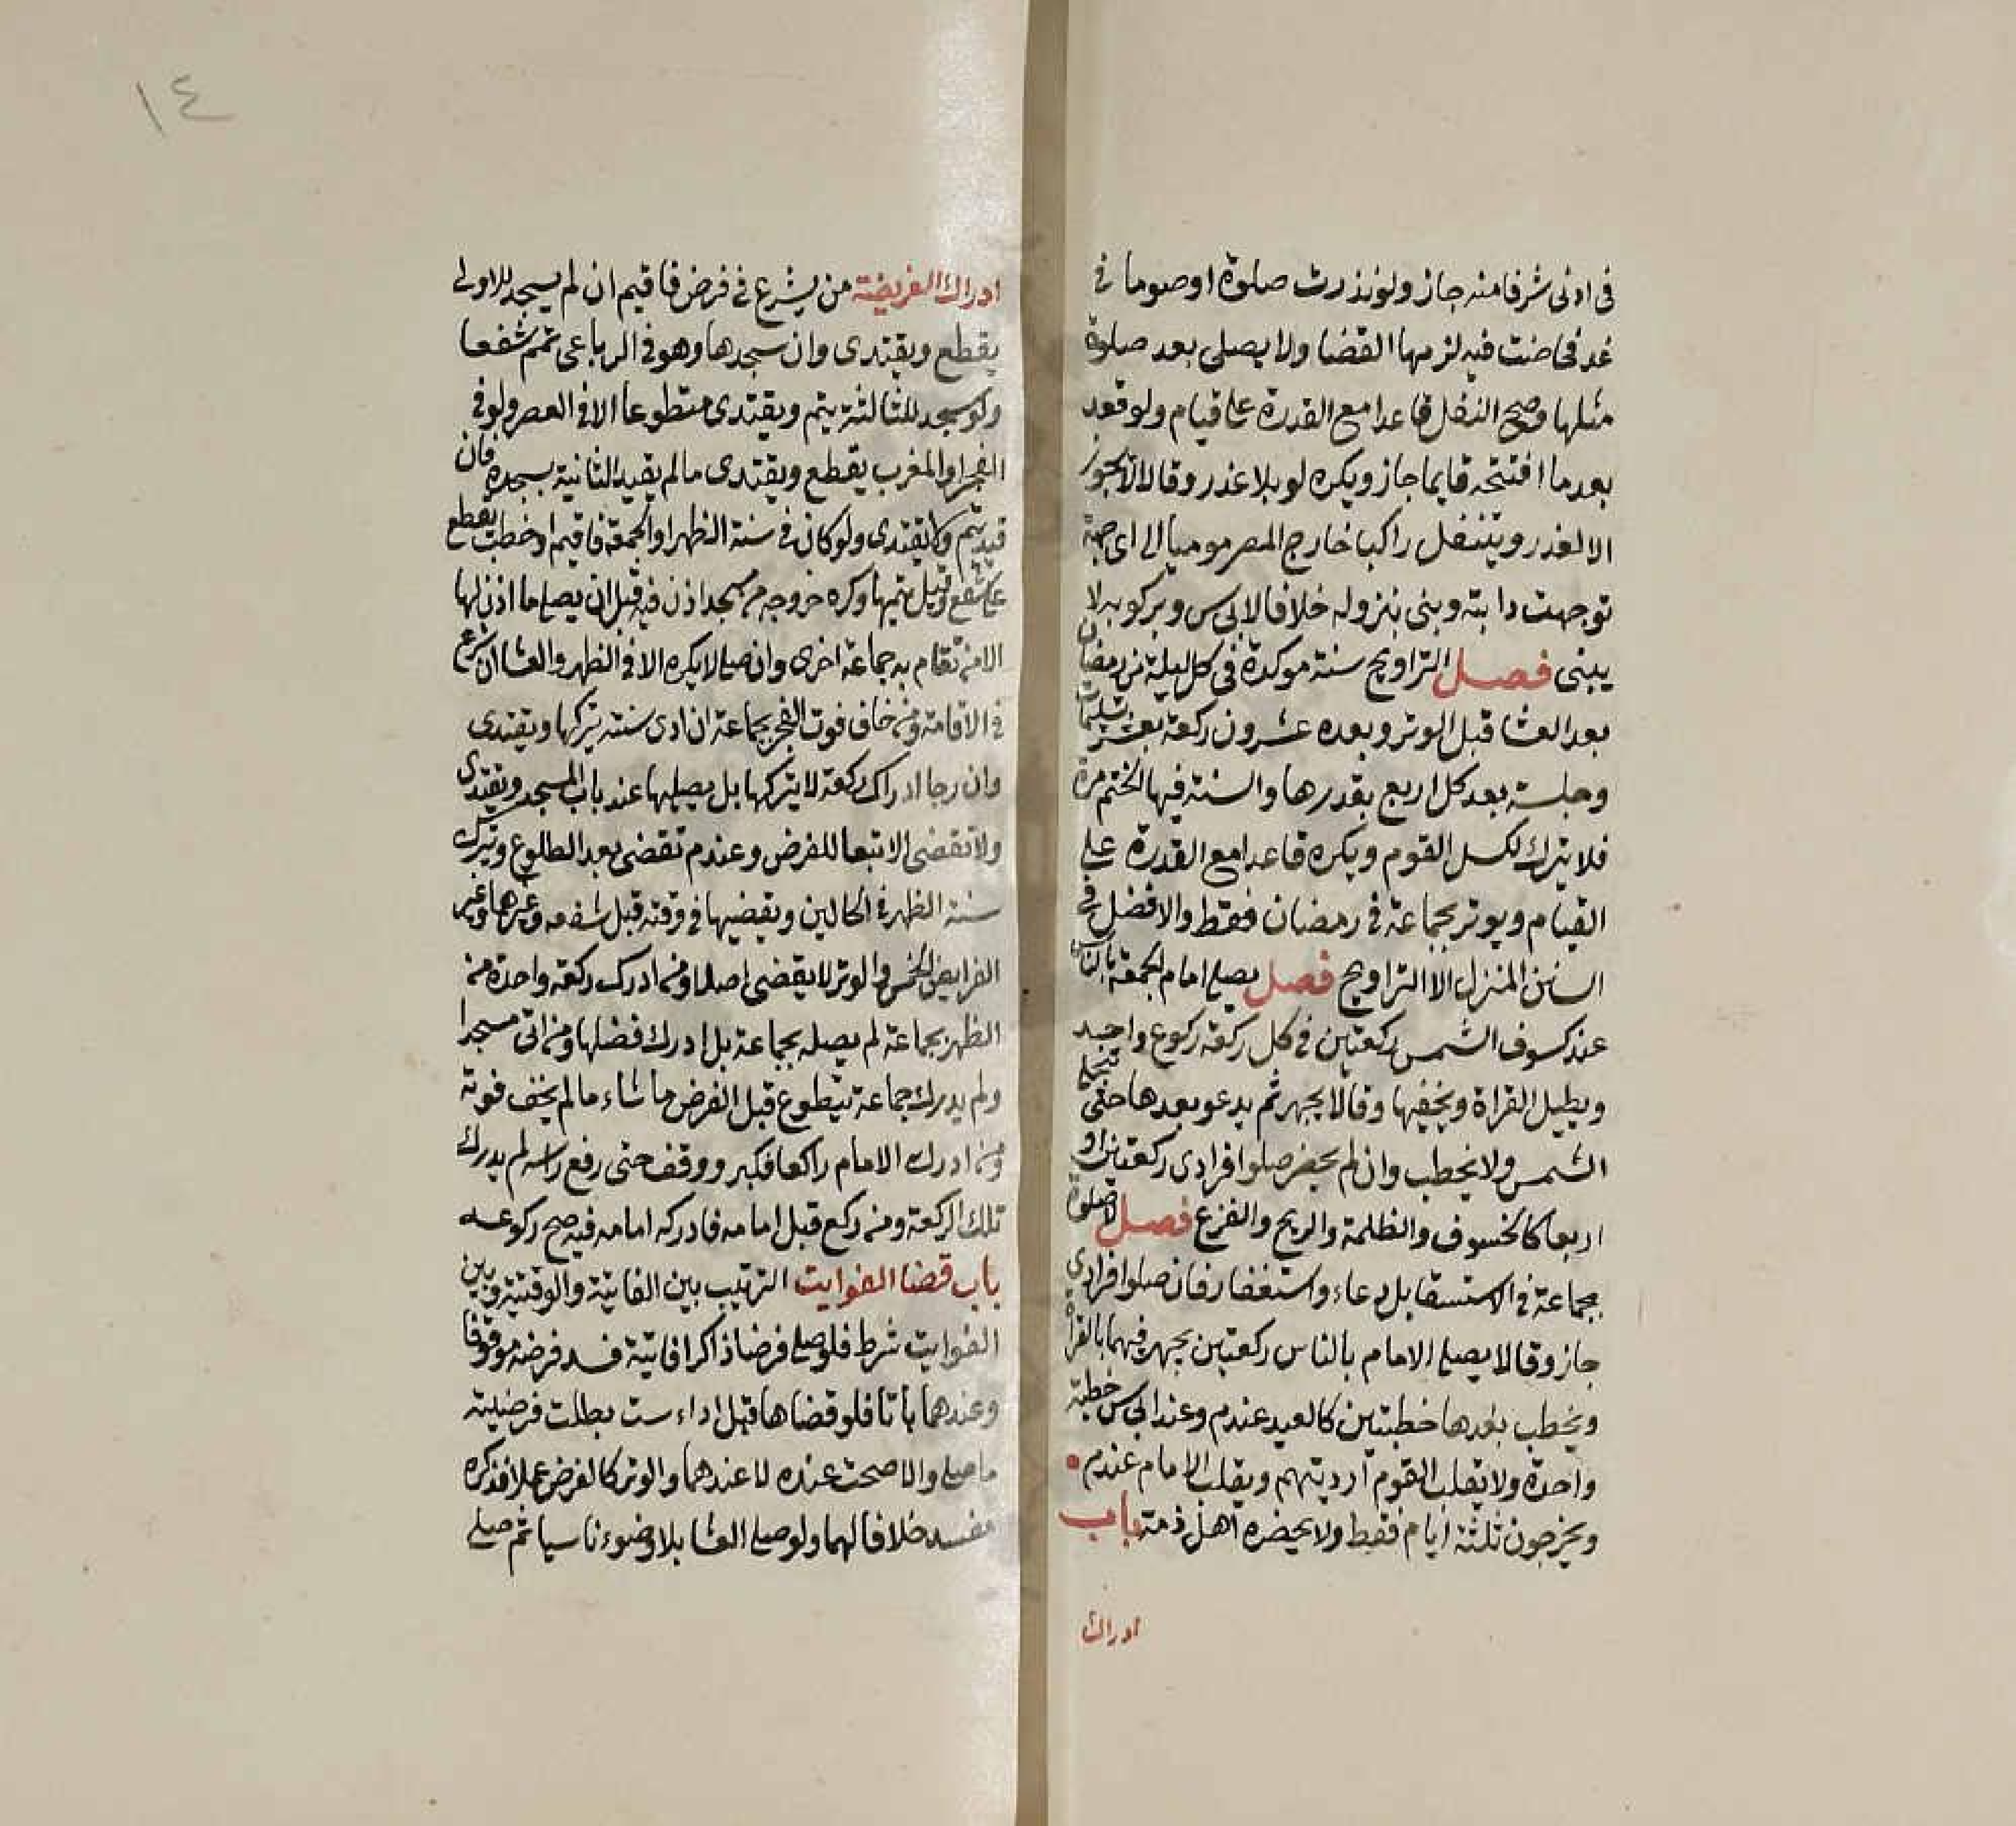 في ادنى شرفا منه جاز ولو نذرت صلوة او صوما في
غد فحاضت فيه لزمها القضا ولا يصلى بعد صلوة
مثلها وصح النفل قاعدا مع القدرة على قيام ولو قعد
بعدما افتتحه قايما جاز ويكره لو بلا عذر وقالا لا يجوز
الا لعذر ويتنفل راكبا خارج المصر موميا الى اى جهة
توجهت دابته وبنى بنزوله خلافا لابى س وبركوبه لا
يبنى فصل التراويح سنة موكدة في كل ليلة من رمضان
بعد العشا قبل الوتر وبعده عشرون ركعة بعشر تسليمات
وجلسة بعد كل اربع بقدرها والسنة فيها الختم مرة
فلا يترك لكسل القوم ويكره قاعدا مع القدرة على
القيام ويوتر بجماعة في رمضان فقط والافضل في
السنن المنزل الا التراويح فصل يصلى امام الجمعة بالناس
عند كسوف الشمس ركعتين في كل ركعة ركوع واحد
ويطيل القراة ويخفيها وقالا يجهر ثم يدعو بعدها حتى تنجلى
الشمس ولا يخطب وان لم يحضر صلوا فرادى ركعتين او
اربعا كالخسوف والظلمة والريح والفزع فصل لا صلوة
بجماعة في الاستسقا بل دعاء واستغفار فان صلوا فرادى
جاز وقالا يصلى الامام بالناس ركعتين يجهر فيهما بالقراة
ويخطب بعدها خطبتين كالعيد عند م وعند ابى س خطبة
واحدة ولا يقلب القوم ارديتهم ويقلب الامام عند م
ويخرجون ثلثة ايام فقط ولا يحضره اهل ذمة باب
ادراك
١٤
ادراك الفريضة من يشرع في فرض فاقيم ان لم يسجد للاولى
يقطع ويقتدى وان سجدها وهو في الرباعى تمم شفعا
ولو سجد للثالثة يتم ويقتدى متطوعا الا في العصر ولو في
الفجر او المغرب يقطع ويقتدى ما لم يقيد الثانية بسجدة فان
قيد يتم ولا يقتدى ولو كان في سنة الظهر او الجمعة فاقيم او خطب يقطع
على شفع وقيل يتمها وكره خروجه من مسجد اذن فيه قبل ان يصلى ما اذن لها
الا من تقام به جماعة اخرى وان صلى لا يكره الا في الظهر والعشا ان شرع
في الاقامة ومن خاف فوت الفجر بجماعة ان ادى سنته يتركها ويقتدى
وان رجا ادراك ركعة لا يتركها بل يصليها عند باب المسجد ويقتدى
ولا تقضى الا تبعا للفرض وعند م تقضى بعد الطلوع ويترك
سنة الظهر في الحالين ويقضيها في وقته قبل شفعه وغيرها وغير
الفرايض الخمس والوتر لا يقضى اصلا ومن ادرك ركعة واحدة من
الظهر بجماعة لم يصله بجماعة بل ادرك فضلها ومن اتى مسجدا
ولم يدرك جماعة يتطوع قبل الفرض ما شاء ما لم يخف فوته
ومن ادرك الامام راكعا فكبر ووقف حتى رفع راسه لم يدرك
تلك الركعة ومن ركع قبل امامه فادركه امامه فيه صح ركوعه
باب قضا الفوايت الترتيب بين الفايتة والوقتية وبين
الفوايت شرط فلو صلى فرضا ذاكرا فايتة فسد فرضه موقوفا
وعندهما باتا فلو قضاها قبل اداء ست بطلت فرضية
ما صلى والا صحت عنده لا عندهما والوتر كالفرض عملا فذكره
مفسد خلافا لهما ولو صلى العشا بلا وضوء ناسيا ثم صلى